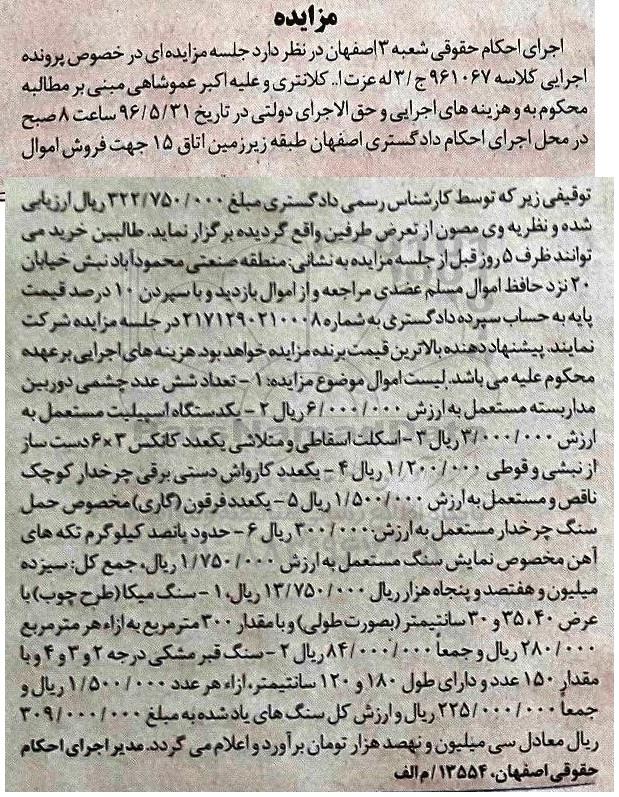 مزایده
اجرای احکام حقوقی شعبه ۳ اصفهان در نظر دارد جلسه مزایده ای در خصوص پرونده
اجرایی کلاسه ۹۶۱۰۶۷ ج/۳ له عزت ا.. کلانتری و علیه اکبر عموشاهی مبنی بر مطالبه
محکوم به و هزینه های اجرایی و حق الاجرای دولتی در تاریخ ۹۶/۵/۳۱ ساعت ۸ صبح
در محل اجرای احکام دادگستری اصفهان طبقه زیرزمین اتاق ۱۵ جهت فروش اموال
توقیفی زیر که توسط کارشناس رسمی دادگستری مبلغ ۳۲۲/۷۵۰/۰۰۰ ریال ارزیابی
شده و نظریه وی مصون از تعرض طرفین واقع گردیده برگزار نماید. طالبین خرید می
توانند ظرف ۵ روز قبل از جلسه مزایده به نشانی: منطقه صنعتی محمودآباد نبش خیابان
۲۰ نزد حافظ اموال مسلم عضدی مراجعه و از اموال بازدید و با سپردن ۱۰ درصد قیمت
پایه به حساب سپرده دادگستری به شماره ۲۱۷۱۲۹۰۲۱۰۰۰۸ در جلسه مزایده شرکت
نمایند. پیشنهاد دهنده بالاترین قیمت برنده مزایده خواهد بود. هزینه های اجرایی بر عهده
محکوم علیه می باشد. لیست اموال موضوع مزایده: ۱- تعداد شش عدد چشمی دوربین
مداربسته مستعمل به ارزش ۶/۰۰۰/۰۰۰ ریال ۲- یکدستگاه اسپیلیت مستعمل به
ارزش ۳/۰۰۰/۰۰۰ ریال ۳- اسکلت اسقاطی و متلاشی یکعدد کانکس ۳×۶ دست ساز
از نبشی و قوطی ۱/۲۰۰/۰۰۰ ریال ۴- یکعدد کارواش دستی برقی چرخدار کوچک
ناقص و مستعمل به ارزش ۱/۵۰۰/۰۰۰ ریال ۵- یکعدد فرقون (گاری) مخصوص حمل
سنگ چرخدار مستعمل به ارزش ۳۰۰/۰۰۰ ریال ۶- حدود پانصد کیلوگرم تکه های
آهن مخصوص نمایش سنگ مستعمل به ارزش ۱/۷۵۰/۰۰۰ ریال، جمع کل: سیزده
میلیون و هفتصد و پنجاه هزار ریال ۱۳/۷۵۰/۰۰۰ ریال، ۱- سنگ میکا (طرح چوب) با
عرض ۴۰، ۳۵ و ۳۰ سانتیمتر (بصورت طولی) و با مقدار ۳۰۰ متر مربع به ازاء هر متر مربع
۲۸۰/۰۰۰ ریال و جمعاً ۸۴/۰۰۰/۰۰۰ ریال ۲- سنگ قبر مشکی درجه ۲ و ۳ و ۴ و با
مقدار ۱۵۰ عدد و دارای طول ۱۸۰ و ۱۲۰ سانتیمتر، ازاء هر عدد ۱/۵۰۰/۰۰۰ ریال و
جمعاً ۲۲۵/۰۰۰/۰۰۰ ریال و ارزش کل سنگ های یاد شده به مبلغ ۳۰۹/۰۰۰/۰۰۰
ریال معادل سی میلیون و نهصد هزار تومان برآورد و اعلام می گردد. مدیر اجرای احکام
حقوقی اصفهان، ۱۳۵۵۴/م الف